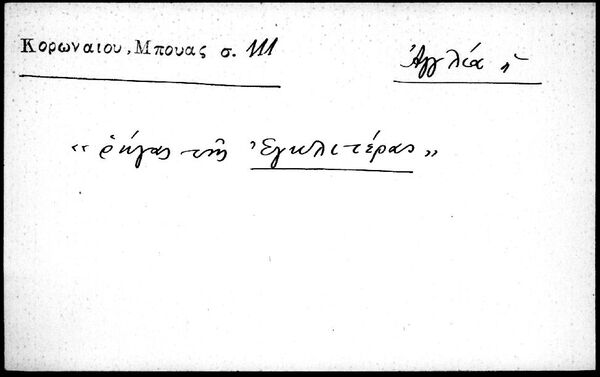 Κορωναιου, Μπουας σ. 111
Ἀγγλία ἡ
«ῥήγας τῆς Ἐγκλιτέρας»